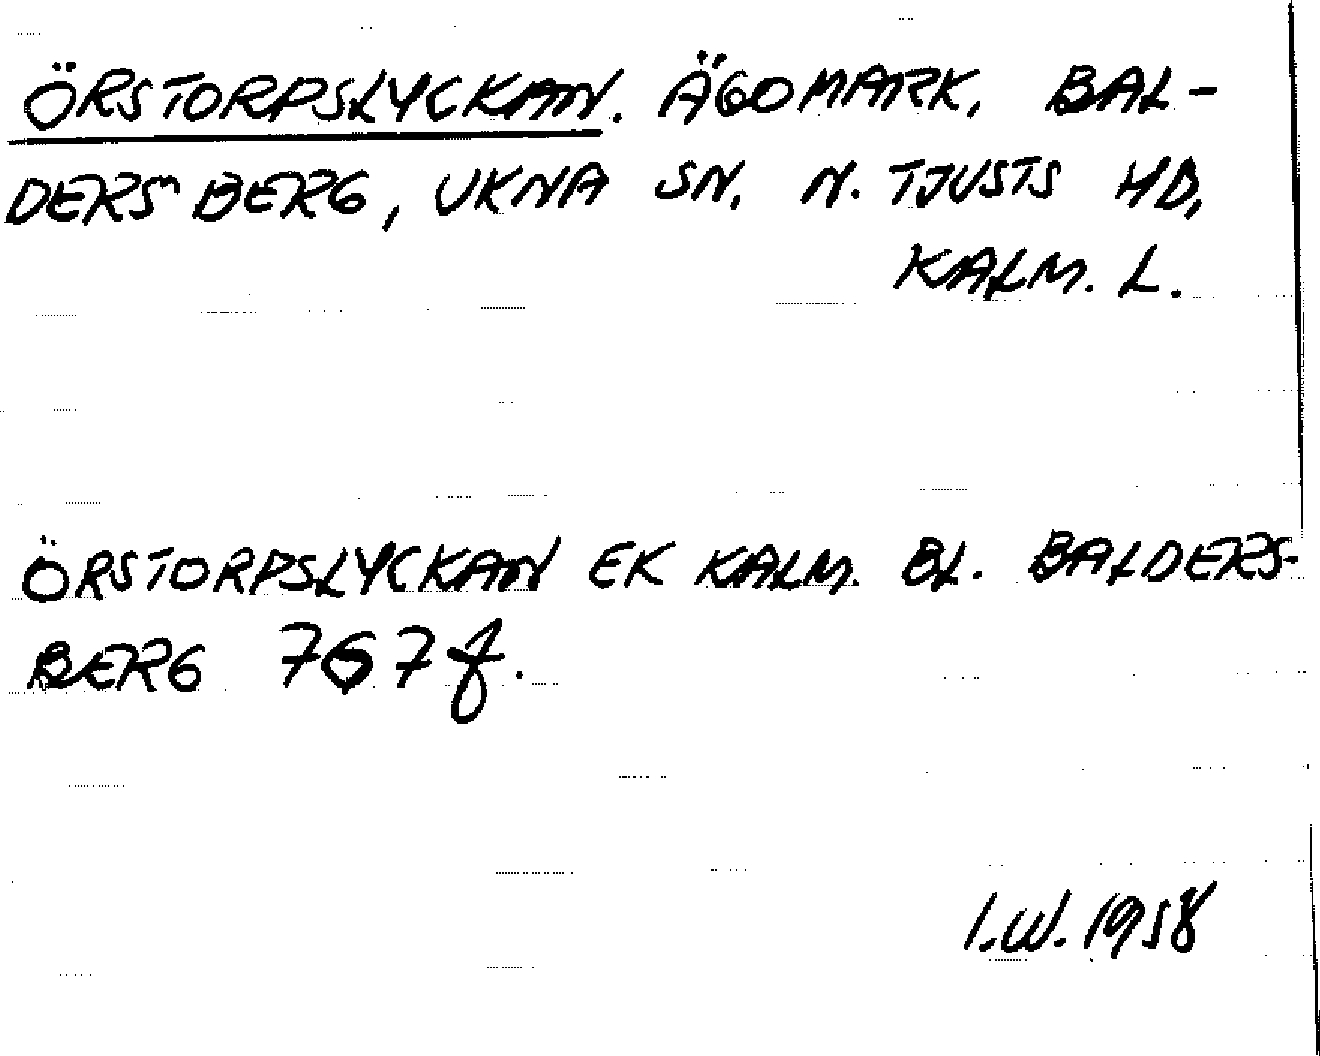 ÖRSTORPSLYCKAN. ÄGOMARK, BAL-
DERSBERG, UKNA SN. N. TJUSTS HD,
KALM. L.
ÖRSTORPSLYCKAN EK KALM. BL. BALDERS-
BERG 767 f.
I.W. 1958